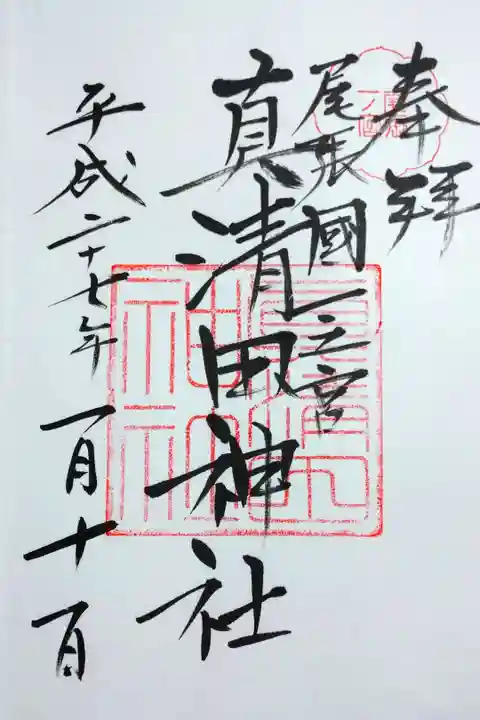 奉拝
尾張國一之宮
真清田神社
平成二十七年一月十一日